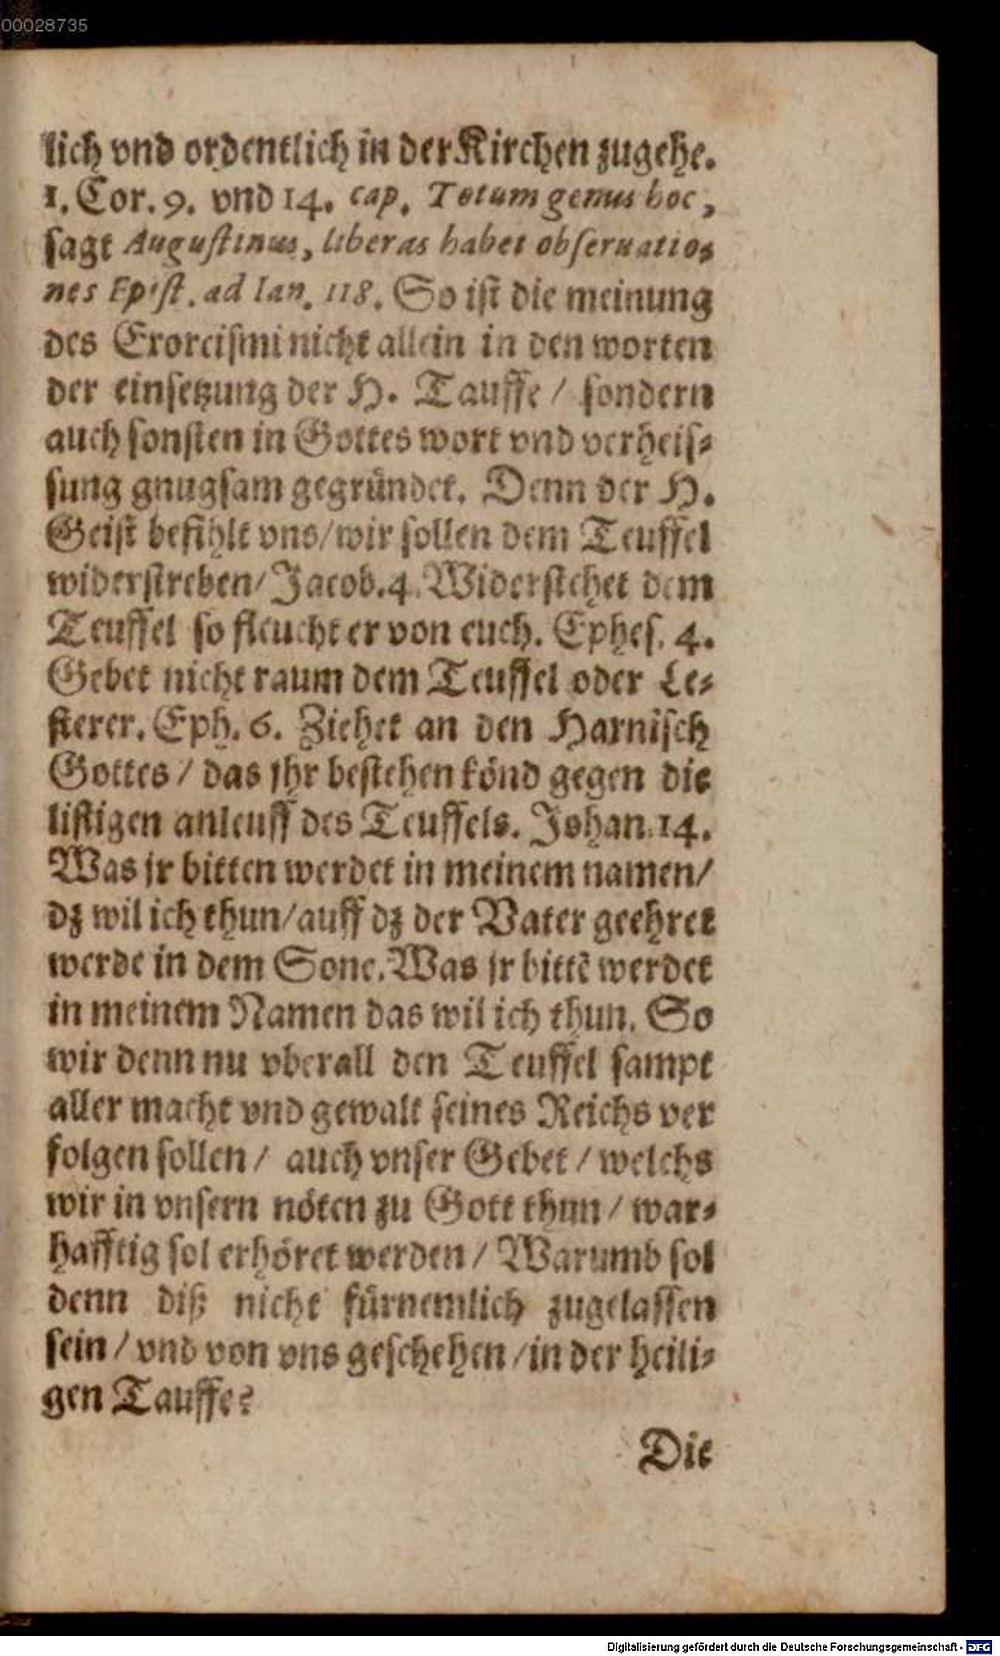 00028735
lich vnd ordentlich in der Kirchen zugehe.
1. Cor. 9. vnd 14. cap. Totum genus hoc,
sagt Augustinus, liberas habet obseruatio-
nes Epist. ad Ian. 118. So ist die meinung
des Exorcismi nicht allein in den worten
der einsetzung der H. Tauffe / sondern
auch sonsten in Gottes wort vnd verheis-
sung gnugsam gegründet. Denn der H.
Geist befihlt vns/wir sollen dem Teuffel
widerstreben/Jacob.4. Widerstehet dem
Teuffel so fleucht er von euch. Ephes. 4.
Gebet nicht raum dem Teuffel oder Le-
sterer. Eph. 6. Ziehet an den Harnisch
Gottes / das jhr bestehen könd gegen die
listigen anleuff des Teuffels. Johan.14.
Was jr bitten werdet in meinem namen/
dz wil ich thun/auff dz der Vater geehret
werde in dem Sone. Was jr bittē werdet
in meinem Namen das wil ich thun. So
wir denn nu vberall den Teuffel sampt
aller macht vnd gewalt seines Reichs ver
folgen sollen / auch vnser Gebet / welchs
wir in vnsern nöten zu Gott thun / war-
hafftig sol erhöret werden / Warumb sol
denn diß nicht fürnemlich zugelassen
sein / vnd von vns geschehen /in der heili-
gen Tauffe?
Die
Digitalisierung gefördert durch die Deutsche Forschungsgemeinschaft - DFG